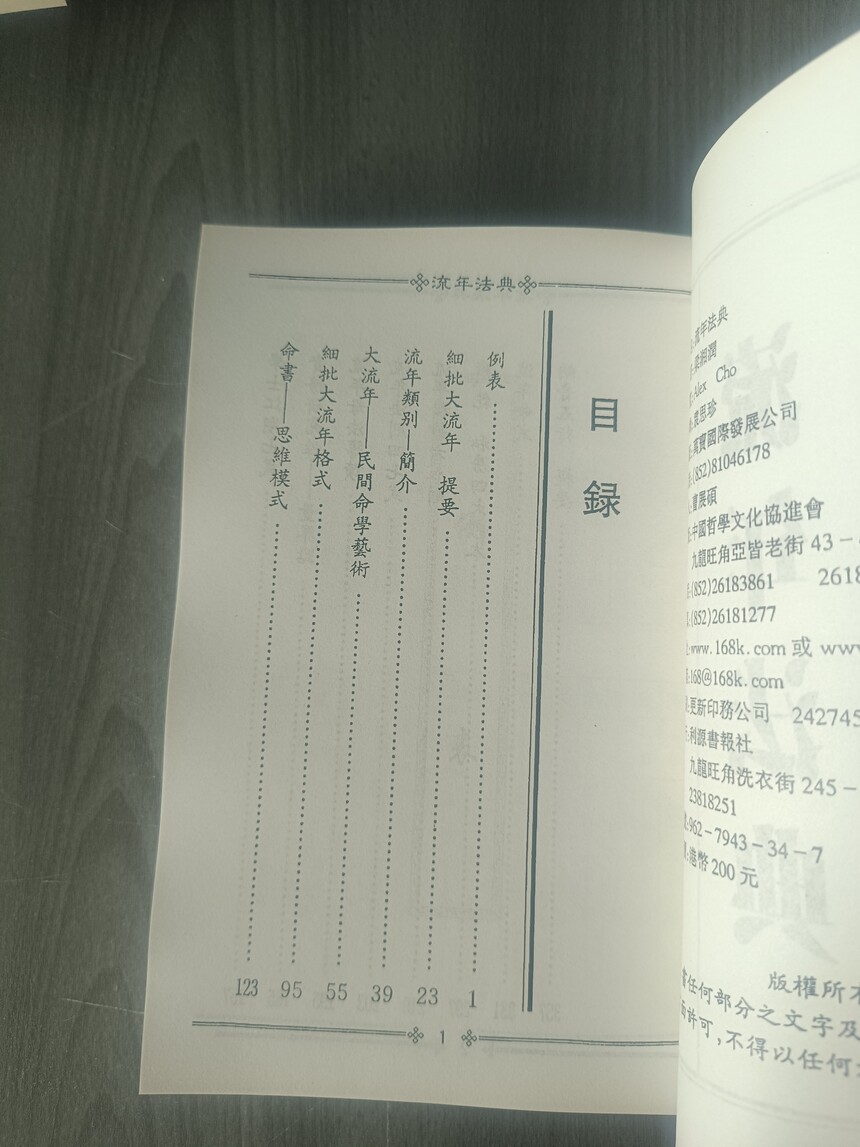 流年法典
目録
例表 1
細批大流年 提要 23
流年類別—簡介 39
大流年——民間命學藝術 55
細批大流年格式 95
命書——思維模式 123
1
流年法典
梁湘潤
Alex Cho
葉思珍
萬寶國際發展公司
(852)81046178
曹展碩
中國哲學文化協進會
九龍旺角亞皆老街 43－
(852)26183861 2618
(852)26181277
www.168k.com 或 www
168@168k.com
更新印務公司 242745
利源書報社
九龍旺角洗衣街 245－
23818251
962－7943－34－7
港幣 200 元
版權所
任何部分之文字及
許可,不得以任何